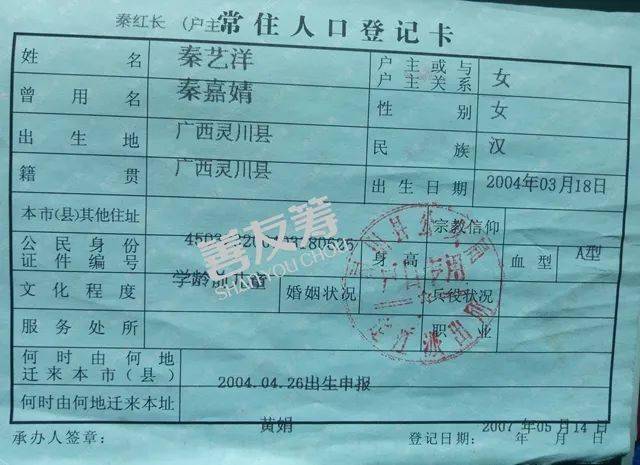 秦红长 (户主 常住人口登记卡
姓名 秦艺洋 户主或与户主关系 女
曾用名 秦嘉婧 性别 女
出生地 广西灵川县 民族 汉
籍贯 广西灵川县 出生日期 2004年03月18日
本市(县)其他住址 宗教信仰
公民身份证件编号 身高 血型 A型
文化程度 学龄前儿童 婚姻状况 兵役状况
服务处所 职业
何时由何地迁来本市(县) 2004.04.26出生申报
何时由何地迁来本址
黄娟 2007 年05 月14 日
承办人签章: 登记日期: 年 月 日
善友筹
SHANYOU CHOU